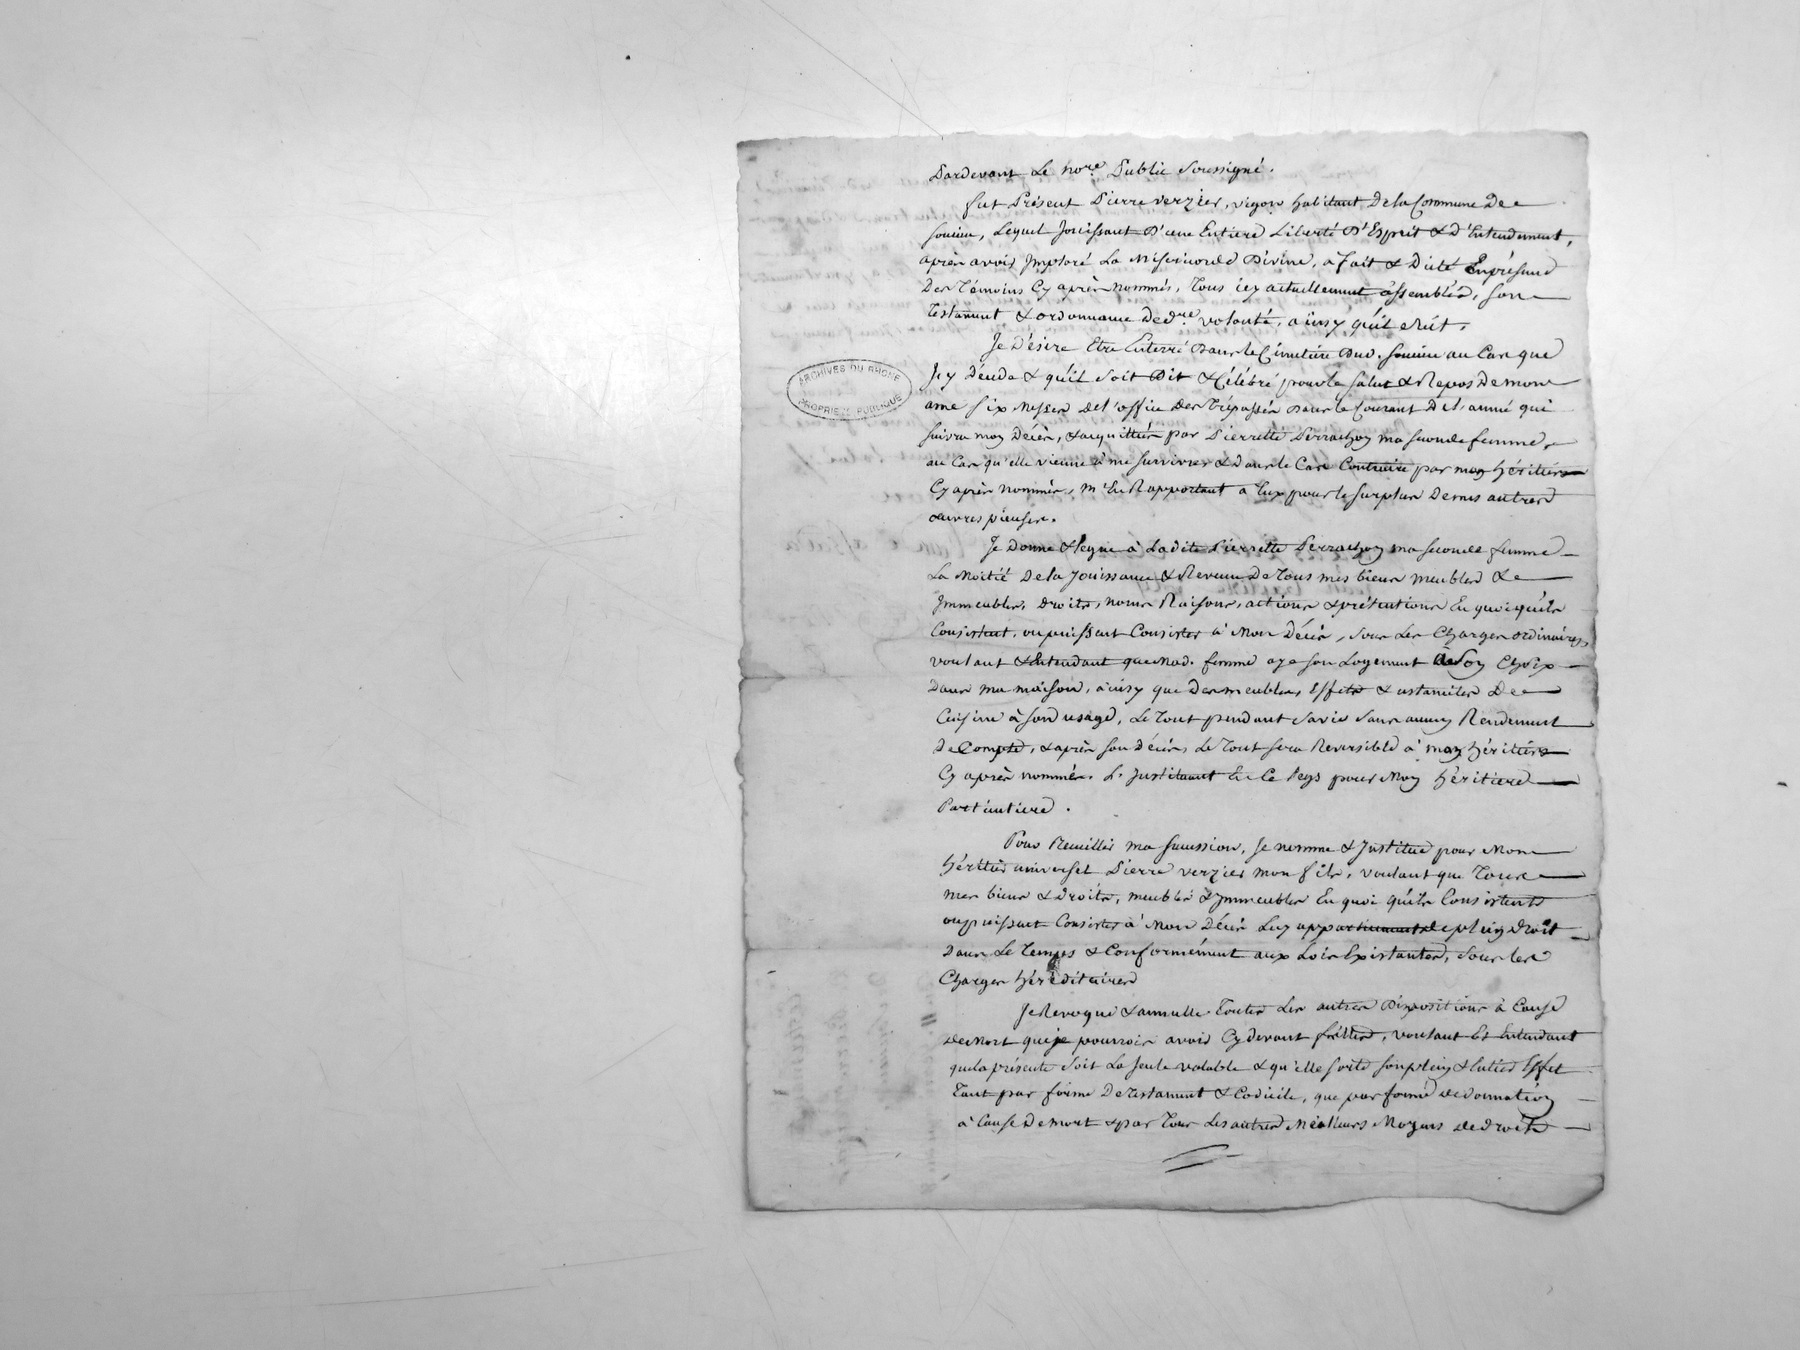 Pardevant Le no.re Public Soussigné.
fut Présent Pierre verzier, vigon habitant De la Commune De
soucieu, Lequel Jouissant D'une Entiere Liberté D'Esprit & d'Entendement,
après avoir Imploré La Misericorde Divine, a fait & Dicté En présence
Des Témoins Cy après nommés, Tous icy actuellement assemblés, son
Testament & ordonnance De d.re volonté, ainsy qu'il suit.
Je Désire Etre Enterré Dans le Cimetière Dud. soucieu au Cas que
J'y Décede & qu'il soit Dit & Célébré pour le salut & Repos De mon
ame six Messes de l'office Des Trépassés Dans le Courant De l'année qui
suivra moy Décès, & acquittées par Pierrette Perrachon ma seconde femme,
au Cas qu'elle vienne à me survivre & Dans le Cas Contraire par moy héritier
Cy après nommés, m'En Rapportant a Eux pour le surplus De mes autres
œuvres pieuses.
Je Donne & legue à Ladite Pierrette Perrachon ma seconde femme
La Moitié De la Jouissance & Revenu De Tous mes biens meubles &
Immeubles, Droits, noms Raisons, actions & prétentions En quoi qu'ils
Consistent, ou puissent Consister à Mon Décès, sous Les Charges ordinaires,
voulant & Entendant que Mad. femme aye son Logement à Son Choix
Dans ma maison, ainsy que Des meubles, Effets & ustanciles De
Cuisine à son usage, Le Tout pendant sa vie sans aucun Rendement
De Compte, & après son Décès, Le Tout sera Reversible à moy héritier
Cy après nommés. L'Instituant En Ce Legs pour Moy héritiere
Particuliere.
Pour Recuillir ma succession, Je nomme & Institue pour Mon
héritier universel Pierre verzier mon fils, voulant que Tous
mes biens & Droits, meubles & Immeubles En quoi qu'ils Consistent
ou puissent Consister à Mon Décès Luy appartiennent de plein droit
Dans Le Temps & Conformément aux Loix Existantes, sous les
Charges héréditaires
Je Revoque & annulle Toutes Les autres Dispositions à Cause
De Mort que je pourrois avoir Cy devant faittes, voulant Et Entendant
que la présente soit La seule valable & qu'elle sorte son plein & Entier Effet
Tant par forme De Testament & Codicile, que par forme de donation
à Cause De mort & par Tous Les autres Meilleurs Moyens de droit
ARCHIVES DU RHONE
PROPRIETE PUBLIQUE